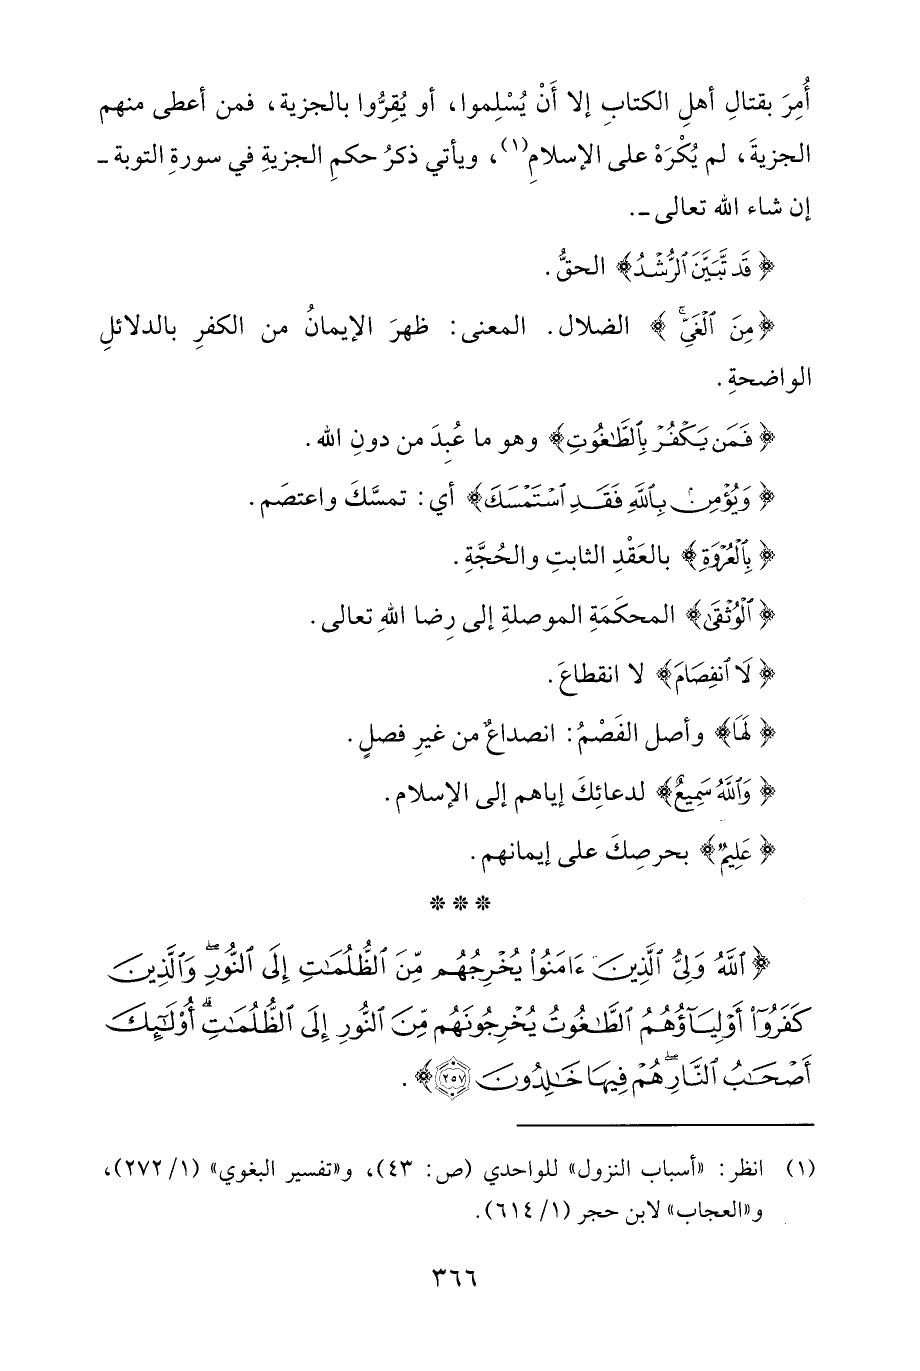 أُمِرَ بقتالِ أهلِ الكتابِ إلا أَنْ يُسْلِموا، أو يُقِرُّوا بالجزية، فمن أعطى منهم
الجزيةَ، لم يُكْرَهْ على الإسلامِ(١)، ويأتي ذكرُ حكمِ الجزيةِ في سورةِ التوبة ـ
إن شاء الله تعالى ـ.
﴿قَد تَّبَيَّنَ ٱلرُّشْدُ﴾ الحقُّ.
﴿مِنَ ٱلْغَيِّۚ﴾ الضلال. المعنى: ظهرَ الإيمانُ من الكفرِ بالدلائلِ
الواضحةِ.
﴿فَمَن يَكْفُرْ بِٱلطَّٰغُوتِ﴾ وهو ما عُبِدَ من دونِ الله.
﴿وَيُؤْمِنۢ بِٱللَّهِ فَقَدِ ٱسْتَمْسَكَ﴾ أي: تمسَّكَ واعتصَم.
﴿بِٱلْعُرْوَةِ﴾ بالعَقْدِ الثابتِ والحُجَّةِ.
﴿ٱلْوُثْقَىٰ﴾ المحكَمَةِ الموصلةِ إلى رِضا اللهِ تعالى.
﴿لَا ٱنفِصَامَ﴾ لا انقطاعَ.
﴿لَهَا﴾ وأصل الفَصْمُ: انصداعٌ من غيرِ فصلٍ.
﴿وَٱللَّهُ سَمِيعٌ﴾ لدعائِكَ إياهم إلى الإسلام.
﴿عَلِيمٌ﴾ بحرصِكَ على إيمانهم.
* * *
﴿ٱللَّهُ وَلِيُّ ٱلَّذِينَ ءَامَنُوا۟ يُخْرِجُهُم مِّنَ ٱلظُّلُمَٰتِ إِلَى ٱلنُّورِۖ وَٱلَّذِينَ
كَفَرُوٓا۟ أَوْلِيَآؤُهُمُ ٱلطَّٰغُوتُ يُخْرِجُونَهُم مِّنَ ٱلنُّورِ إِلَى ٱلظُّلُمَٰتِۗ أُو۟لَٰٓئِكَ
أَصْحَٰبُ ٱلنَّارِۖ هُمْ فِيهَا خَٰلِدُونَ ٢٥٧﴾.
(١) انظر: «أسباب النزول» للواحدي (ص: ٤٣)، و«تفسير البغوي» (١/ ٢٧٢)،
و«العجاب» لابن حجر (١/ ٦١٤).
٣٦٦